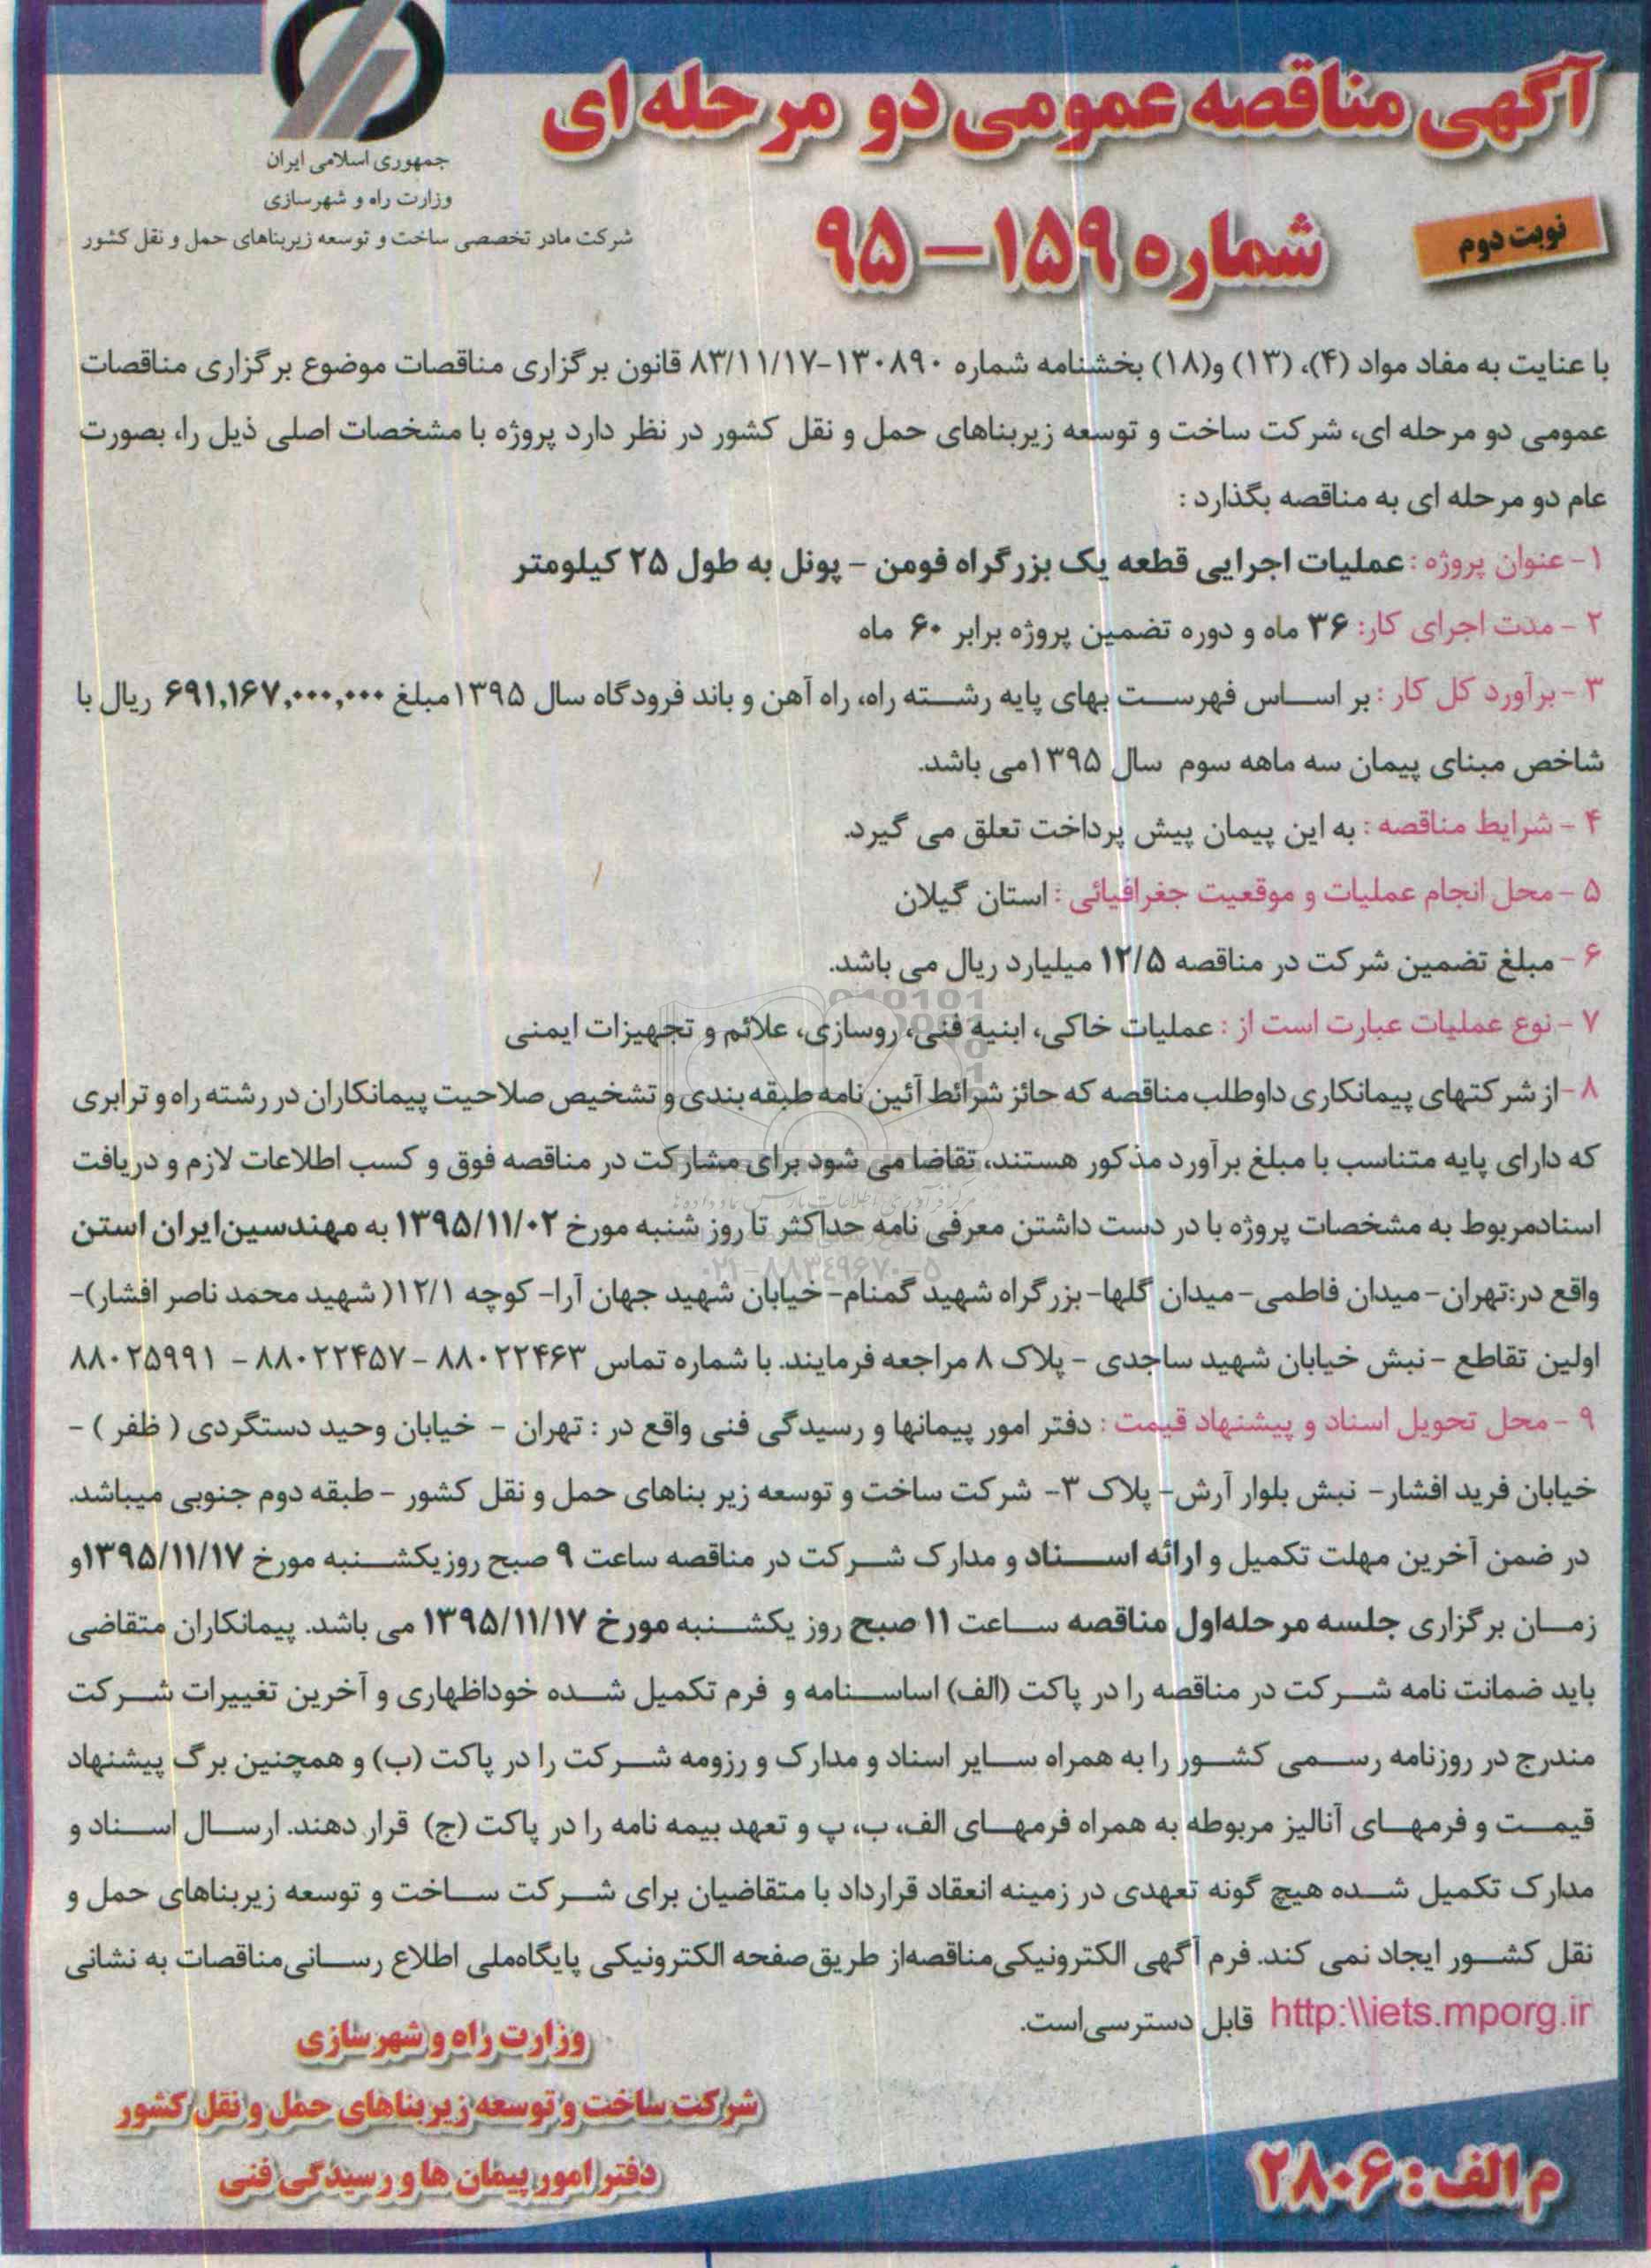 آگهی مناقصه عمومی دو مرحله ای
شماره ۱۵۹ – ۹۵
نوبت دوم
جمهوری اسلامی ایران
وزارت راه و شهرسازی
شرکت مادر تخصصی ساخت و توسعه زیربناهای حمل و نقل کشور
با عنایت به مفاد مواد (۴)، (۱۳) و(۱۸) بخشنامه شماره ۱۳۰۸۹۰-۸۳/۱۱/۱۷ قانون برگزاری مناقصات موضوع برگزاری مناقصات
عمومی دو مرحله ای، شرکت ساخت و توسعه زیربناهای حمل و نقل کشور در نظر دارد پروژه با مشخصات اصلی ذیل را، بصورت
عام دو مرحله ای به مناقصه بگذارد :
۱- عنوان پروژه : عملیات اجرایی قطعه یک بزرگراه فومن – پونل به طول ۲۵ کیلومتر
۲ – مدت اجرای کار: ۳۶ ماه و دوره تضمین پروژه برابر ۶۰ ماه
۳ –برآورد کل کار : بر اساس فهرست بهای پایه رشته راه، راه آهن و باند فرودگاه سال ۱۳۹۵مبلغ ۶۹۱,۱۶۷,۰۰۰,۰۰۰ ریال با
شاخص مبنای پیمان سه ماهه سوم سال ۱۳۹۵می باشد.
۴ – شرایط مناقصه : به این پیمان پیش پرداخت تعلق می گیرد.
۵ – محل انجام عملیات و موقعیت جغرافیائی : استان گیلان
۶ –مبلغ تضمین شرکت در مناقصه ۱۲/۵ میلیارد ریال می باشد.
۷ – نوع عملیات عبارت است از : عملیات خاکی، ابنیه فنی، روسازی، علائم و تجهیزات ایمنی
۸ –از شرکتهای پیمانکاری داوطلب مناقصه که حائز شرائط آئین نامه طبقه بندی و تشخیص صلاحیت پیمانکاران در رشته راه و ترابری
که دارای پایه متناسب با مبلغ برآورد مذکور هستند، تقاضا می شود برای مشارکت در مناقصه فوق و کسب اطلاعات لازم و دریافت
اسنادمربوط به مشخصات پروژه با در دست داشتن معرفی نامه حداکثر تا روز شنبه مورخ ۱۳۹۵/۱۱/۰۲ به مهندسین ایران استن
واقع در:تهران– میدان فاطمی– میدان گلها– بزرگراه شهید گمنام– خیابان شهید جهان آرا– کوچه ۱۲/۱( شهید محمد ناصر افشار)–
اولین تقاطع – نبش خیابان شهید ساجدی – پلاک ۸ مراجعه فرمایند. با شماره تماس ۸۸۰۲۲۴۶۳ – ۸۸۰۲۲۴۵۷ – ۸۸۰۲۵۹۹۱
۹ – محل تحویل اسناد و پیشنهاد قیمت : دفتر امور پیمانها و رسیدگی فنی واقع در : تهران – خیابان وحید دستگردی ( ظفر ) –
خیابان فرید افشار– نبش بلوار آرش– پلاک ۳– شرکت ساخت و توسعه زیر بناهای حمل و نقل کشور – طبقه دوم جنوبی میباشد.
در ضمن آخرین مهلت تکمیل و ارائه اسناد و مدارک شرکت در مناقصه ساعت ۹ صبح روزیکشنبه مورخ ۱۳۹۵/۱۱/۱۷و
زمان برگزاری جلسه مرحله‌اول مناقصه ساعت ۱۱ صبح روز یکشنبه مورخ ۱۳۹۵/۱۱/۱۷ می باشد. پیمانکاران متقاضی
باید ضمانت نامه شرکت در مناقصه را در پاکت (الف) اساسنامه و فرم تکمیل شده خوداظهاری و آخرین تغییرات شرکت
مندرج در روزنامه رسمی کشور را به همراه سایر اسناد و مدارک و رزومه شرکت را در پاکت (ب) و همچنین برگ پیشنهاد
قیمت و فرمهای آنالیز مربوطه به همراه فرمهای الف، ب، پ و تعهد بیمه نامه را در پاکت (ج) قرار دهند. ارسال اسناد و
مدارک تکمیل شده هیچ گونه تعهدی در زمینه انعقاد قرارداد با متقاضیان برای شرکت ساخت و توسعه زیربناهای حمل و
نقل کشور ایجاد نمی کند. فرم آگهی الکترونیکی‌مناقصه‌از طریق‌صفحه الکترونیکی پایگاه‌ملی اطلاع رسانی‌مناقصات به نشانی
http:\\iets.mporg.ir قابل دسترسی‌است.
وزارت راه و شهرسازی
شرکت ساخت و توسعه زیربناهای حمل و نقل کشور
دفتر امور پیمان ها و رسیدگی فنی
م الف : ۲۸۰۶
۰۲۱-۸۸۳۴۹۶۷۰-۵